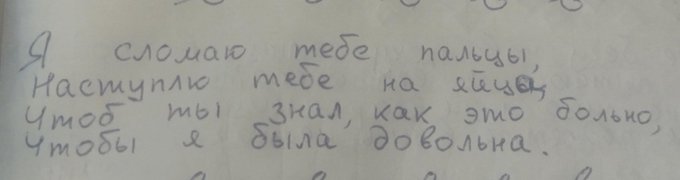 Я сломаю тебе пальцы,
Наступлю тебе на яйца,
Чтоб ты знал, как это больно,
Чтобы я была довольна.